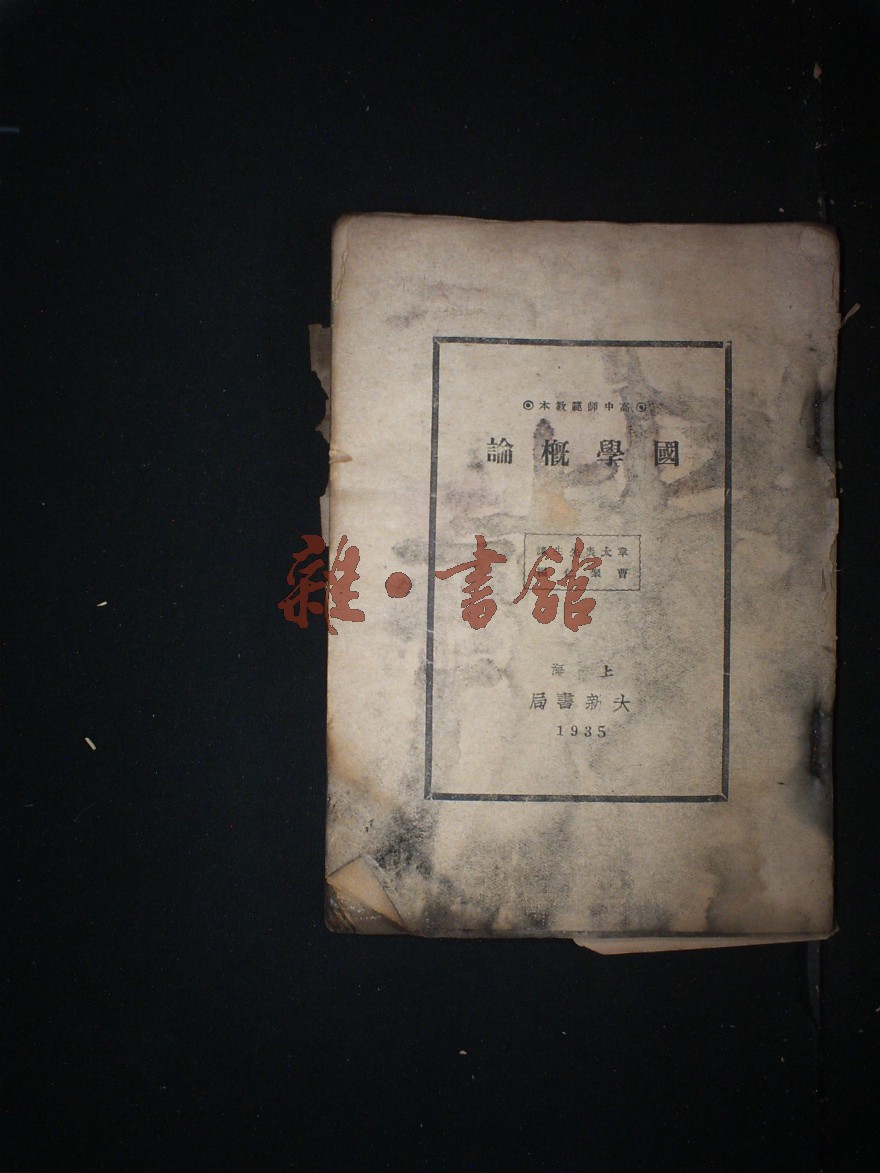 ◎高中師範教本◎
國學槪論
章太炎先生講
曹聚仁
上海
大新書局
1935
雜·書舘